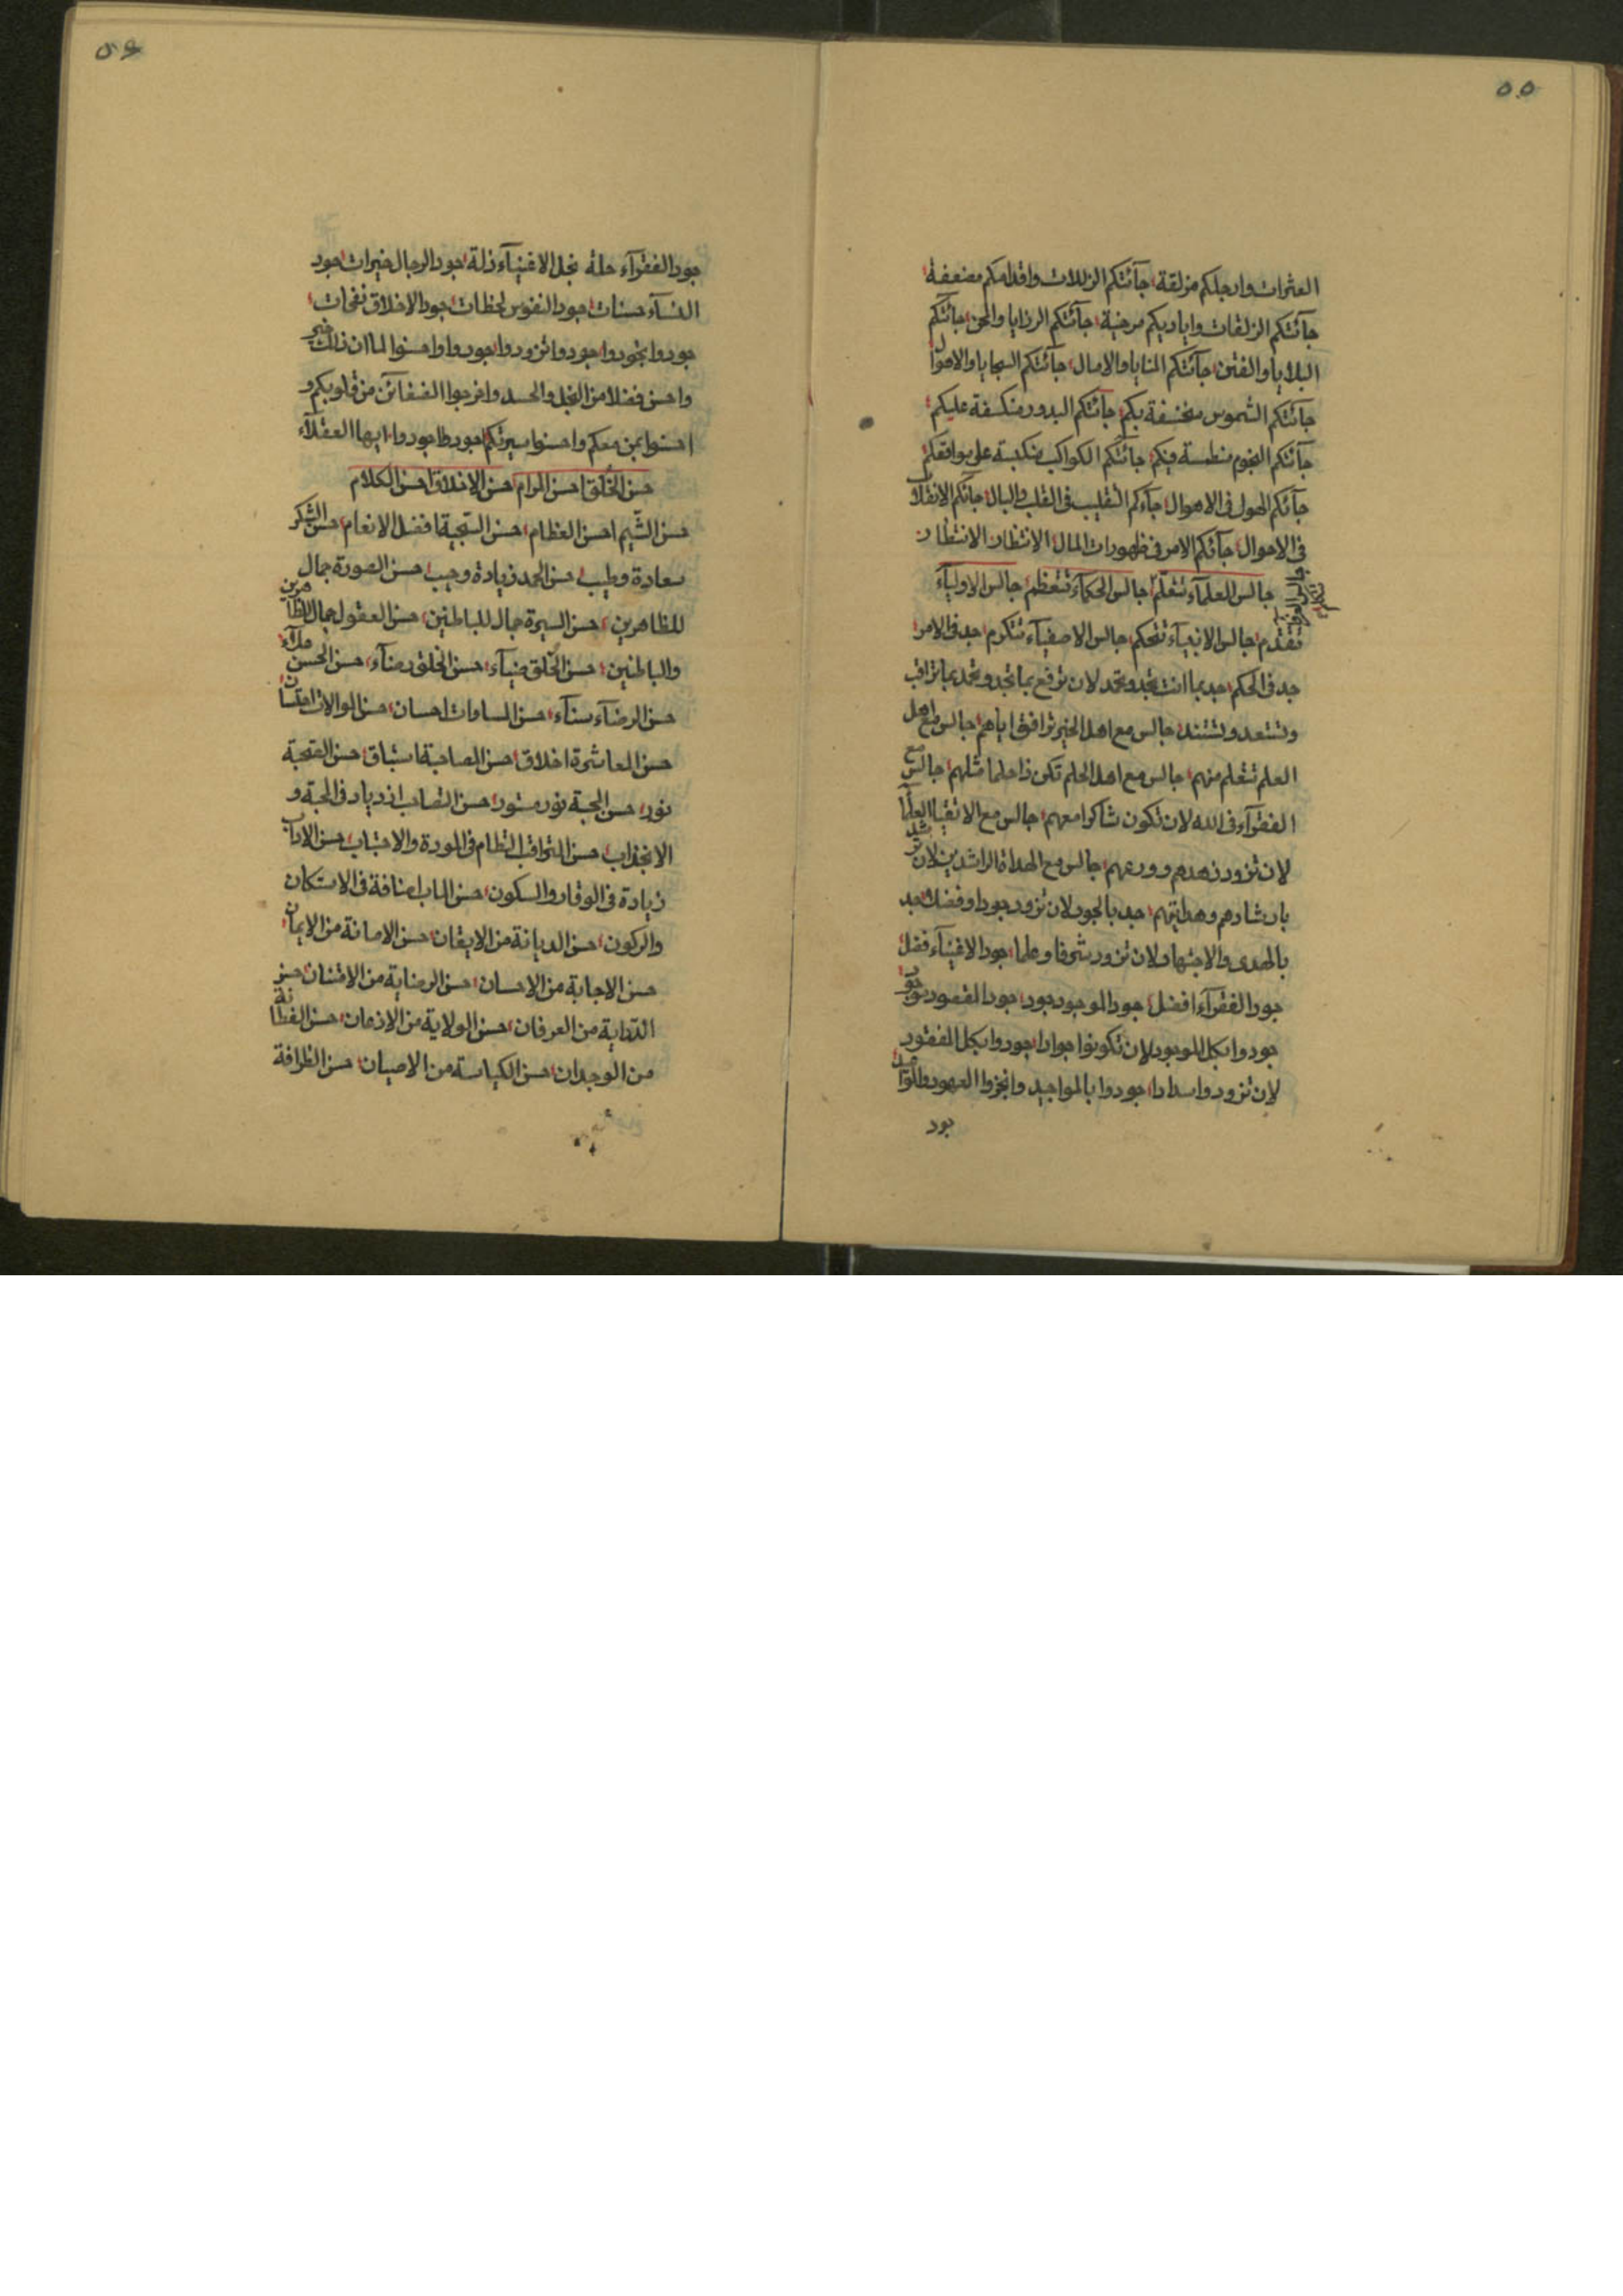 ٥٥
العثرات وارجلكم مزلقة جآئتكم الزللات واقدامكم مضعفة
جآئتكم الزلقات واياديكم مرخية جآئتكم الرزايا والمحن جائتكم
البلايا والفتن جآئتكم المنايا والامال جآئتكم السجايا والاموال
جآئتكم الشموس منخسفة بكم جآئتكم البدور منكسفة عليكم
جآئتكم النجوم منطمسة فيكم جآئتكم الكواكب منكدبة على مواقعكم
جآئكم الهول فى الاهوال جآءكم التقليب فى القلب والبال جآئكم الانقلاب
فى الاحوال جآئكم الامر فى ظهورات المال الانتظار الانتظار
جالس العلمآء تتعلم جالس الحكمآء تتعظم جالس الاوليآء
تتقدم جالس الانبيآء تتحكم جالس الاصفيآء تتكرم جد فى الامر
جد فى الحكم جد بما انت تجد وتحمد لان ترفع بما تجد وتحمد بما تراقب
وتستعد وتستند جالس مع اهل الخير ترافق اياهم جالس مع اهل
العلم تتعلم منهم جالس مع اهل الحلم تكن ذا حلما مثلهم جالس مع
الفقرآء فى الله لان تكون شاكرا معهم جالس مع الاتقيا العلمآ
لان تزود زهدهم وورعهم جالس مع الهداة الراشدين لان ترشد
بارشادهم وهدايتهم جد بالجود لان تزود جودا وفضلا جد
بالهدى والاجتهاد لان تزود شرفا وعلما جود الاغنيآء فضل
جود الفقرآء افضل جود الموجود جود جود المقصود موجود
جودوا بكل الموجود لان تكونوا جوادا جودوا بكل المفقود
لان تزودوا سدادا جودوا بالمواجيد وانجزوا العهود والمواعيد
جود
٥٦
جود الفقرآء حلة بخل الاغنيآء ذلة جود الرجال خيرات جود
النسآء حسنات جود النفوس لحظات جود الاخلاق نفحات
جودوا تجودوا جودوا تزودوا جودوا واحسنوا لما ان ذلك خير
واحسن فضلا من البخل والحسد واخرجوا الضغائن من قلوبكم و
احسنوا بمن معكم واحسنوا سيرتكم جودوا جودوا ايها العقلآء
حسن الخلق احسن المرام حسن الاخلاق احسن الكلام
حسن الشيم احسن العظام حسن السجية افضل الانعام حسن الشكر
سعادة وطيب حسن الحمد زيادة وحيب حسن الصورة جمال
للظاهرين حسن السيرة جمال للباطنين حسن العقول جمال للظاهرين
والباطنين حسن الخلق ضيآء حسن الخلق رضآء حسن الحسن ملآء
حسن الرضآء سنآء حسن المساوات احسان حسن الموالات امتنان
حسن المعاشرة اخلاق حسن المصاحبة استباق حسن الصحبة
نور حسن المحبة نور مستور حسن التصاحب ازدياد فى المحبة و
الانجذاب حسن التراقب انتظام فى المودة والاجتباب حسن الاداب
زيادة فى الوقار والسكون حسن الباب اضافة فى الاستكان
والركون حسن الديانة من الايقان حسن الامانة من الايمان
حسن الاجابة من الاحسان حسن الرضاية من الامتنان حسن
الدراية من العرفان حسن الولاية من الاذعان حسن الفطانة
من الوجدان حسن الكياسة من الاعيان حسن الظرافة